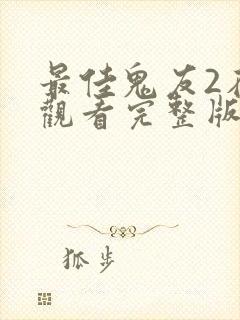 最佳鬼友2
觀看完整版
狐步